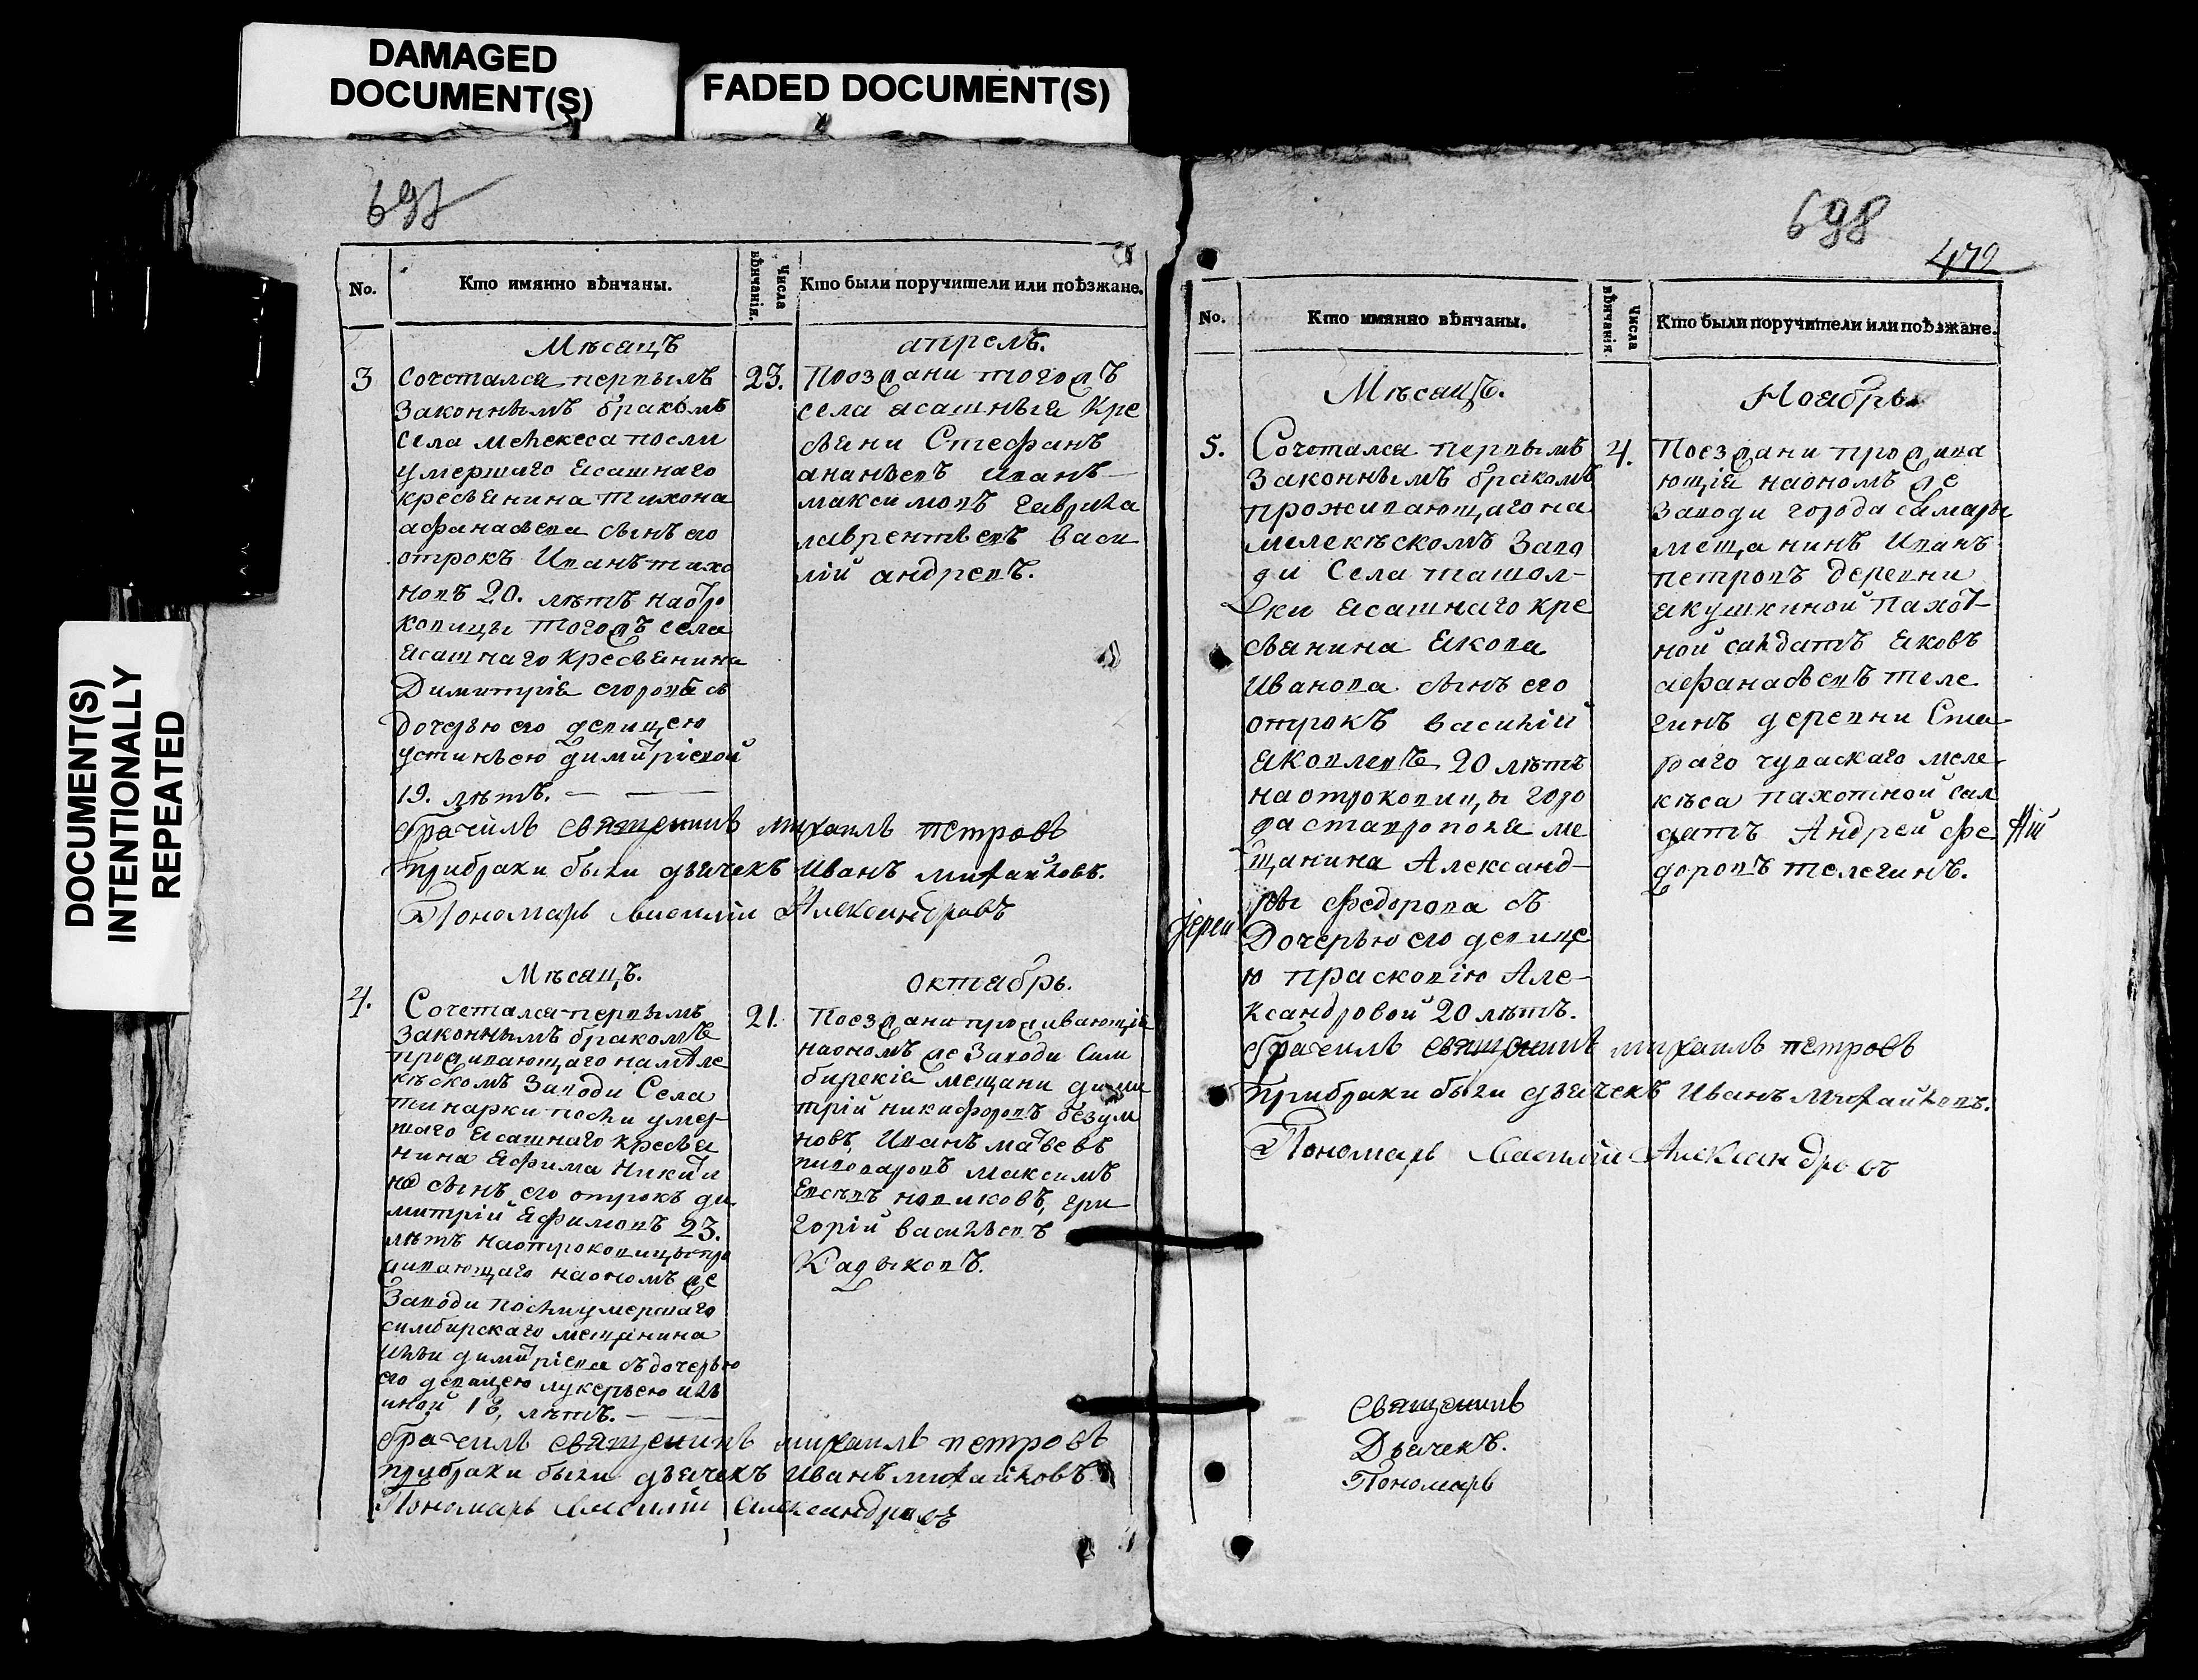 DAMAGED
DOCUMENT(S)
FADED DOCUMENT(S)
DOCUMENT(S)
INTENTIONALLY
REPEATED
697
No.
Кто имянно вѣнчаны.
Числа
вѣнчанія.
Кто были поручители или поѣзжане.
Мѣсяцъ
апрель.
3
Сочетался первымъ
законнымъ бракомъ
села мелекеса посли
умершаго ясашнаго
кресьянина тихона
афанасьева сынъ его
отрокъ Иванъ тихо
новъ 20. лѣтъ наотро
ковицы тогожъ села
ясашнаго кресьянина
Димитрія егорова съ
дочерью его девицею
устиньею димитріевой
19. лѣтъ.
23.
Поезжани тогожъ
села ясашныя кре
сьяни Стефанъ
ананьевъ Иванъ
максимовъ гаврила
лаврентьевъ васи
лій андревъ.
браčилъ священникъ михаилъ петровъ
прибраки были дьячекъ Иванъ михайловъ.
Пономарь Василій Александровъ
Мѣсяцъ.
октябрь.
4.
Сочетался первымъ
законнымъ бракомъ
проживающаго намеле
кѣскомъ заводи Села
тинарки посли умер
шаго ясашнаго кресья
нина Ефима Никити
на сынъ его отрокъ ди
митрій Ефимовъ 23.
лѣтъ наотроковицы про
живающаго наономъ же
Заводи посли умершаго
симбирскаго мещанина
Ильи димитріева съдочерью
его девицею лукерьею иль
иной 18, лѣтъ.
21.
Поезжани проживающія
наономъ же Заводи Сим
бирскія мещани дими
трій никифоровъ безум
новъ Иванъ матвевъ
пивоваровъ максимъ
новиковъ, гри
горій васильевъ
Кадыковъ.
браčилъ священникъ михаилъ петровъ
прибраки были дьячекъ Иванъ михайловъ
Пономарь Василій Александровъ
698
472
No.
Кто имянно вѣнчаны.
Числа
вѣнчанія
Кто были поручители или поѣзжане.
Мѣсяцъ.
Ноябрь.
5.
Сочетался первымъ
законнымъ бракомъ
проживающаго на
мелекѣскомъ Заво
ди Села ташол-
ки ясашнаго кре
сьянина Якова
Иванова сынъ его
отрокъ василій
яковлевъ 20 лѣтъ
наотроковицы горо
да ставрополя ме
щанина Александ-
ры федорова съ
Дочерью его девице
ю прасковію Але-
ксандровой 20 лѣтъ.
4.
Поезжани прожива
ющія наономъ же
Заводи города самары
мещанинъ Иванъ
петровъ деревни
якушкиной пахот-
ной салдатъ яковъ
афанасьевъ теле
гинъ деревни Ста-
раго чувасkаго меле-
кѣса пахотной сал
датъ Андрей фе
доровъ телегинъ.
Іереи
браčилъ священникъ михаилъ петровъ
прибраки были дьячекъ Иванъ михайловъ.
Пономарь Василій Александровъ
Священникъ
Дьячекъ.
Пономарь